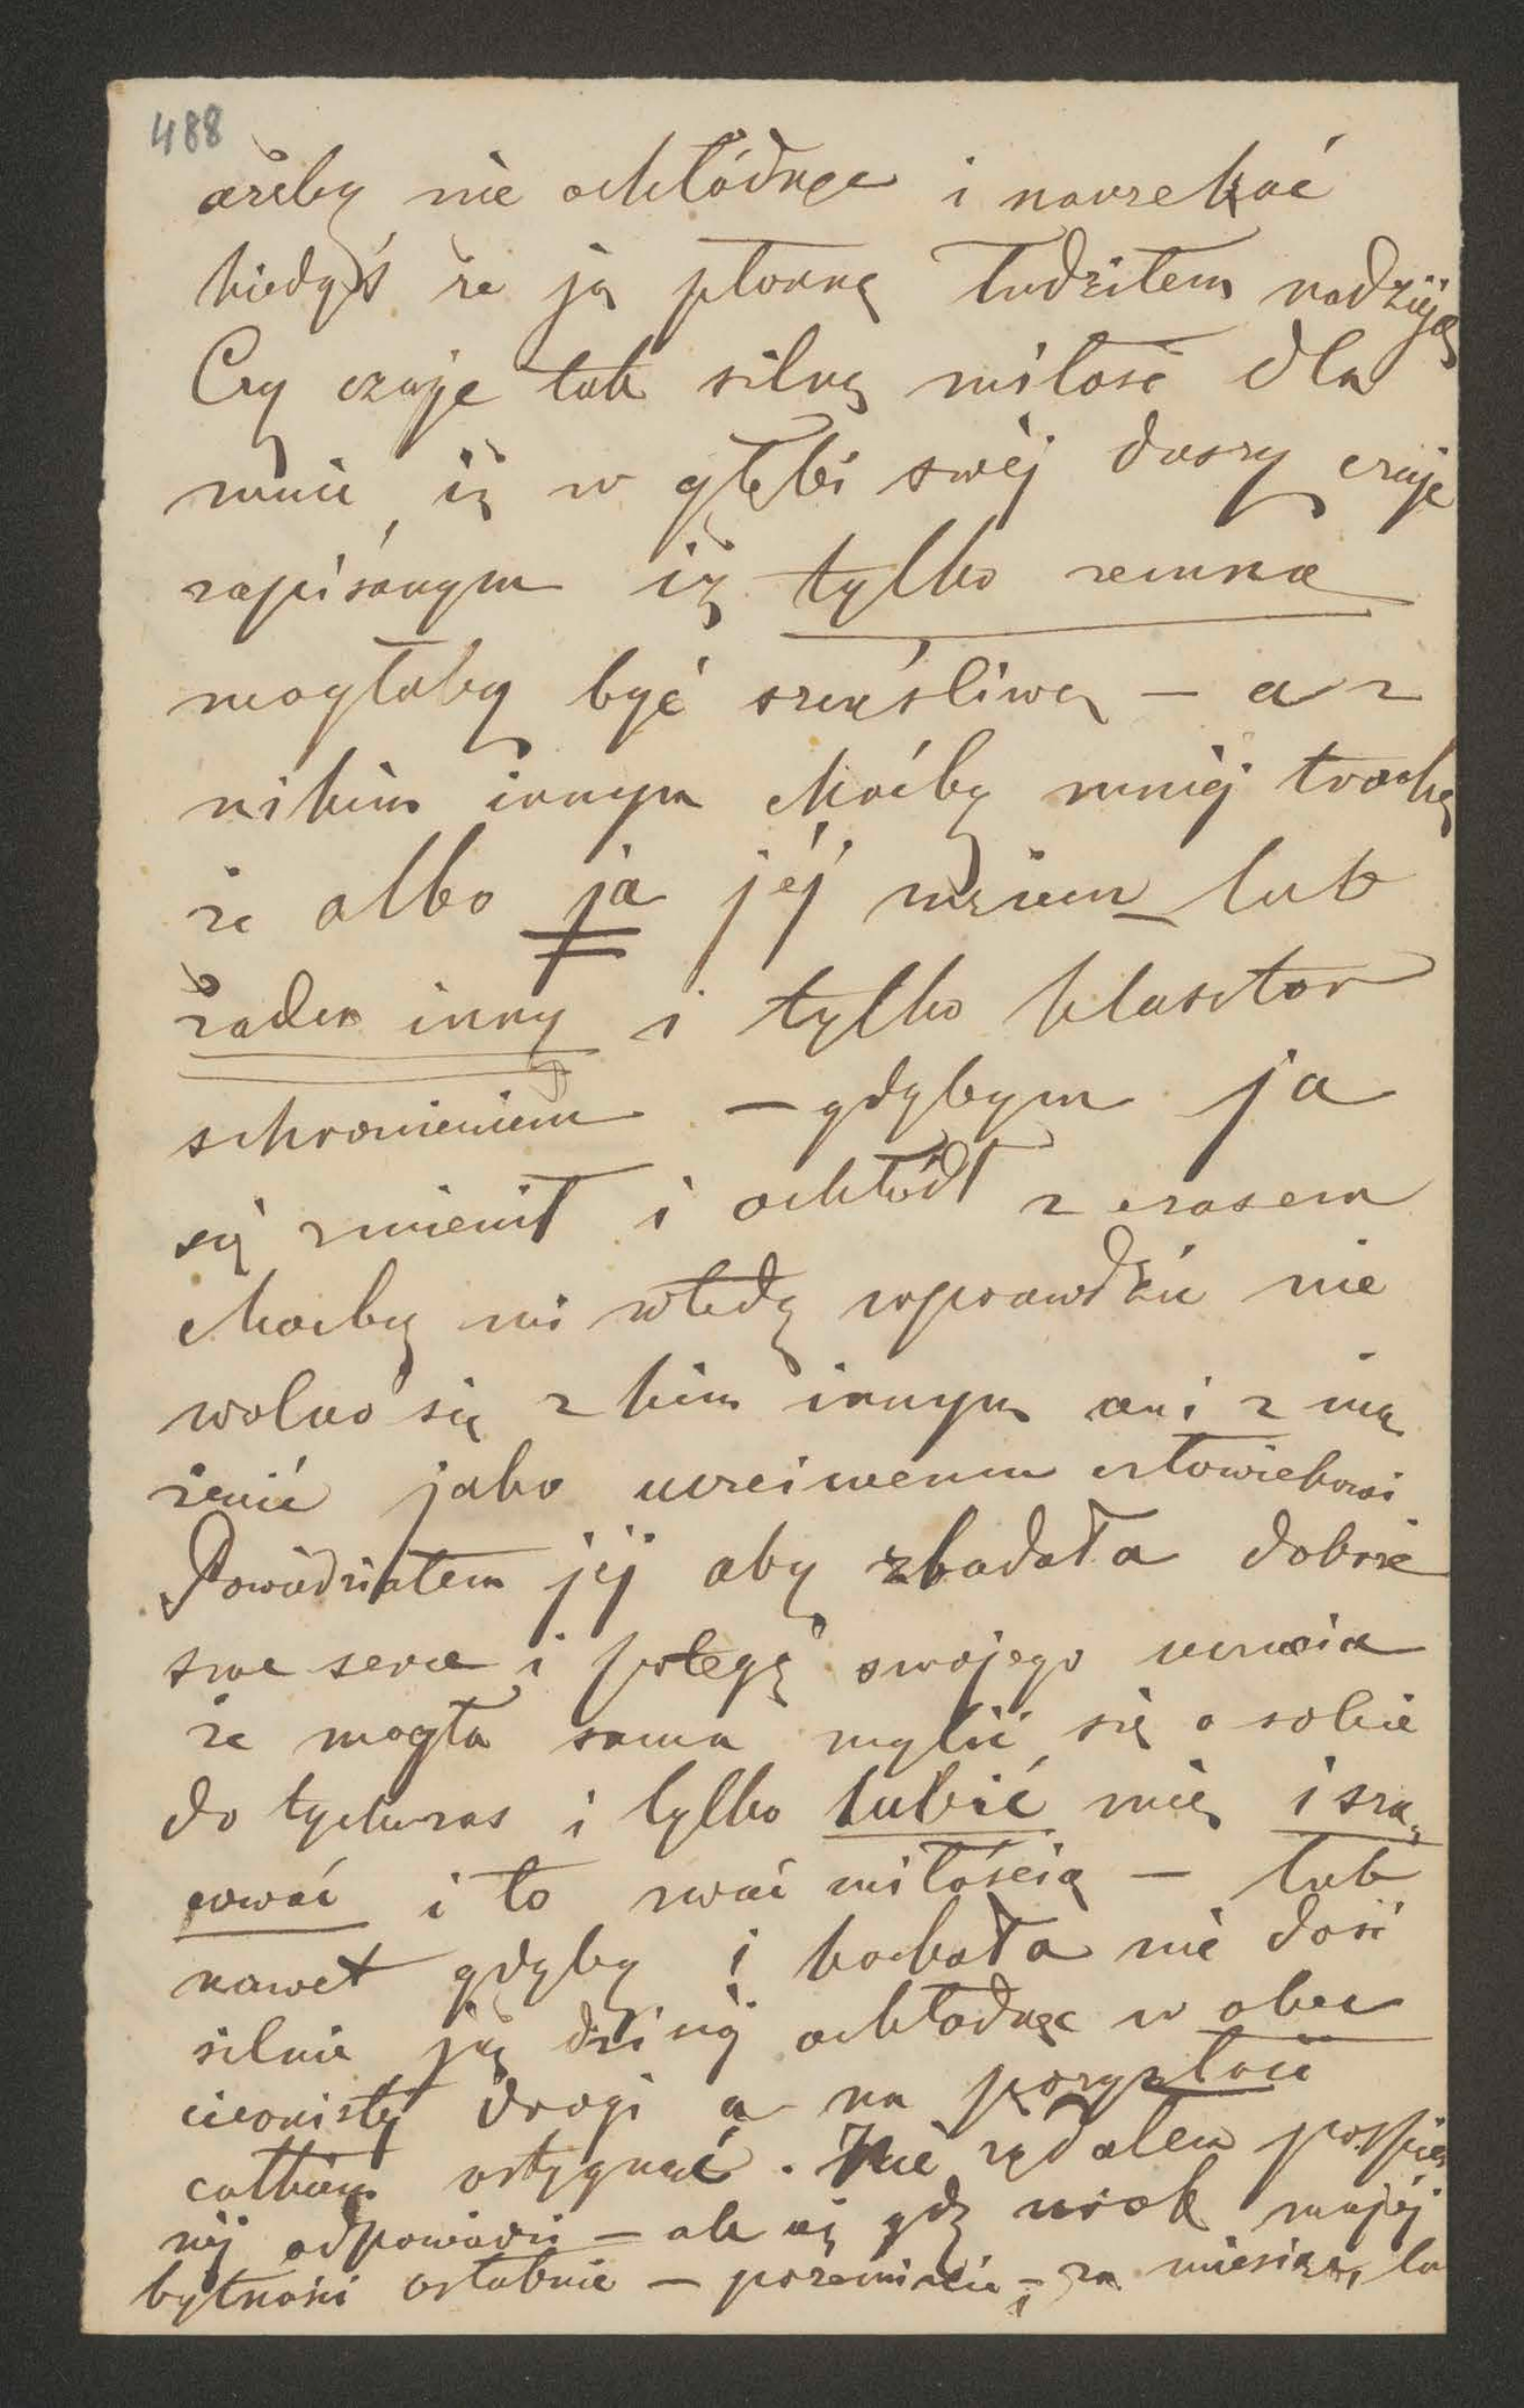 488
ażeby nie ochłódnąć i narzekać
kiedyś że ja płonną łudziłem nadzieją
Czy czuje tak silną miłość dla
mnie, iż w głębi swéj duszy czuje
zapisanym iż tylko zemną
mogłaby być szczęśliwą – a z
nikim innym choćby mniéj trochę
że albo ja jéj mężem lub
żaden inny i tylko klasztor
schronieniem – gdybym ja
się zmienił i ochłódł z czasem
choćby mi wtedy wprawdzie nie
wolno się z kim innym ani z nią
żenić jako uczciwemu człowiekowi
Powiedziałem jéj aby zbadała dobrze
swe serce i potęgę swojego uczucia
że mogła sama mylić się o sobie
do tychczas i tylko lubić mię i sza,
cować i to zwać miłością – lub
nawet gdyby i kochała nie dość
silnie ją dziś ochłodnąć w obec
ciernistéj drogi a na przyszłość
całkiem ostygnąć. Nie żądałem pospiesz
néj odpowiedzi – ale aż gdy urok mojéj
bytności osłabnie – przeminie – za miesiąc, la